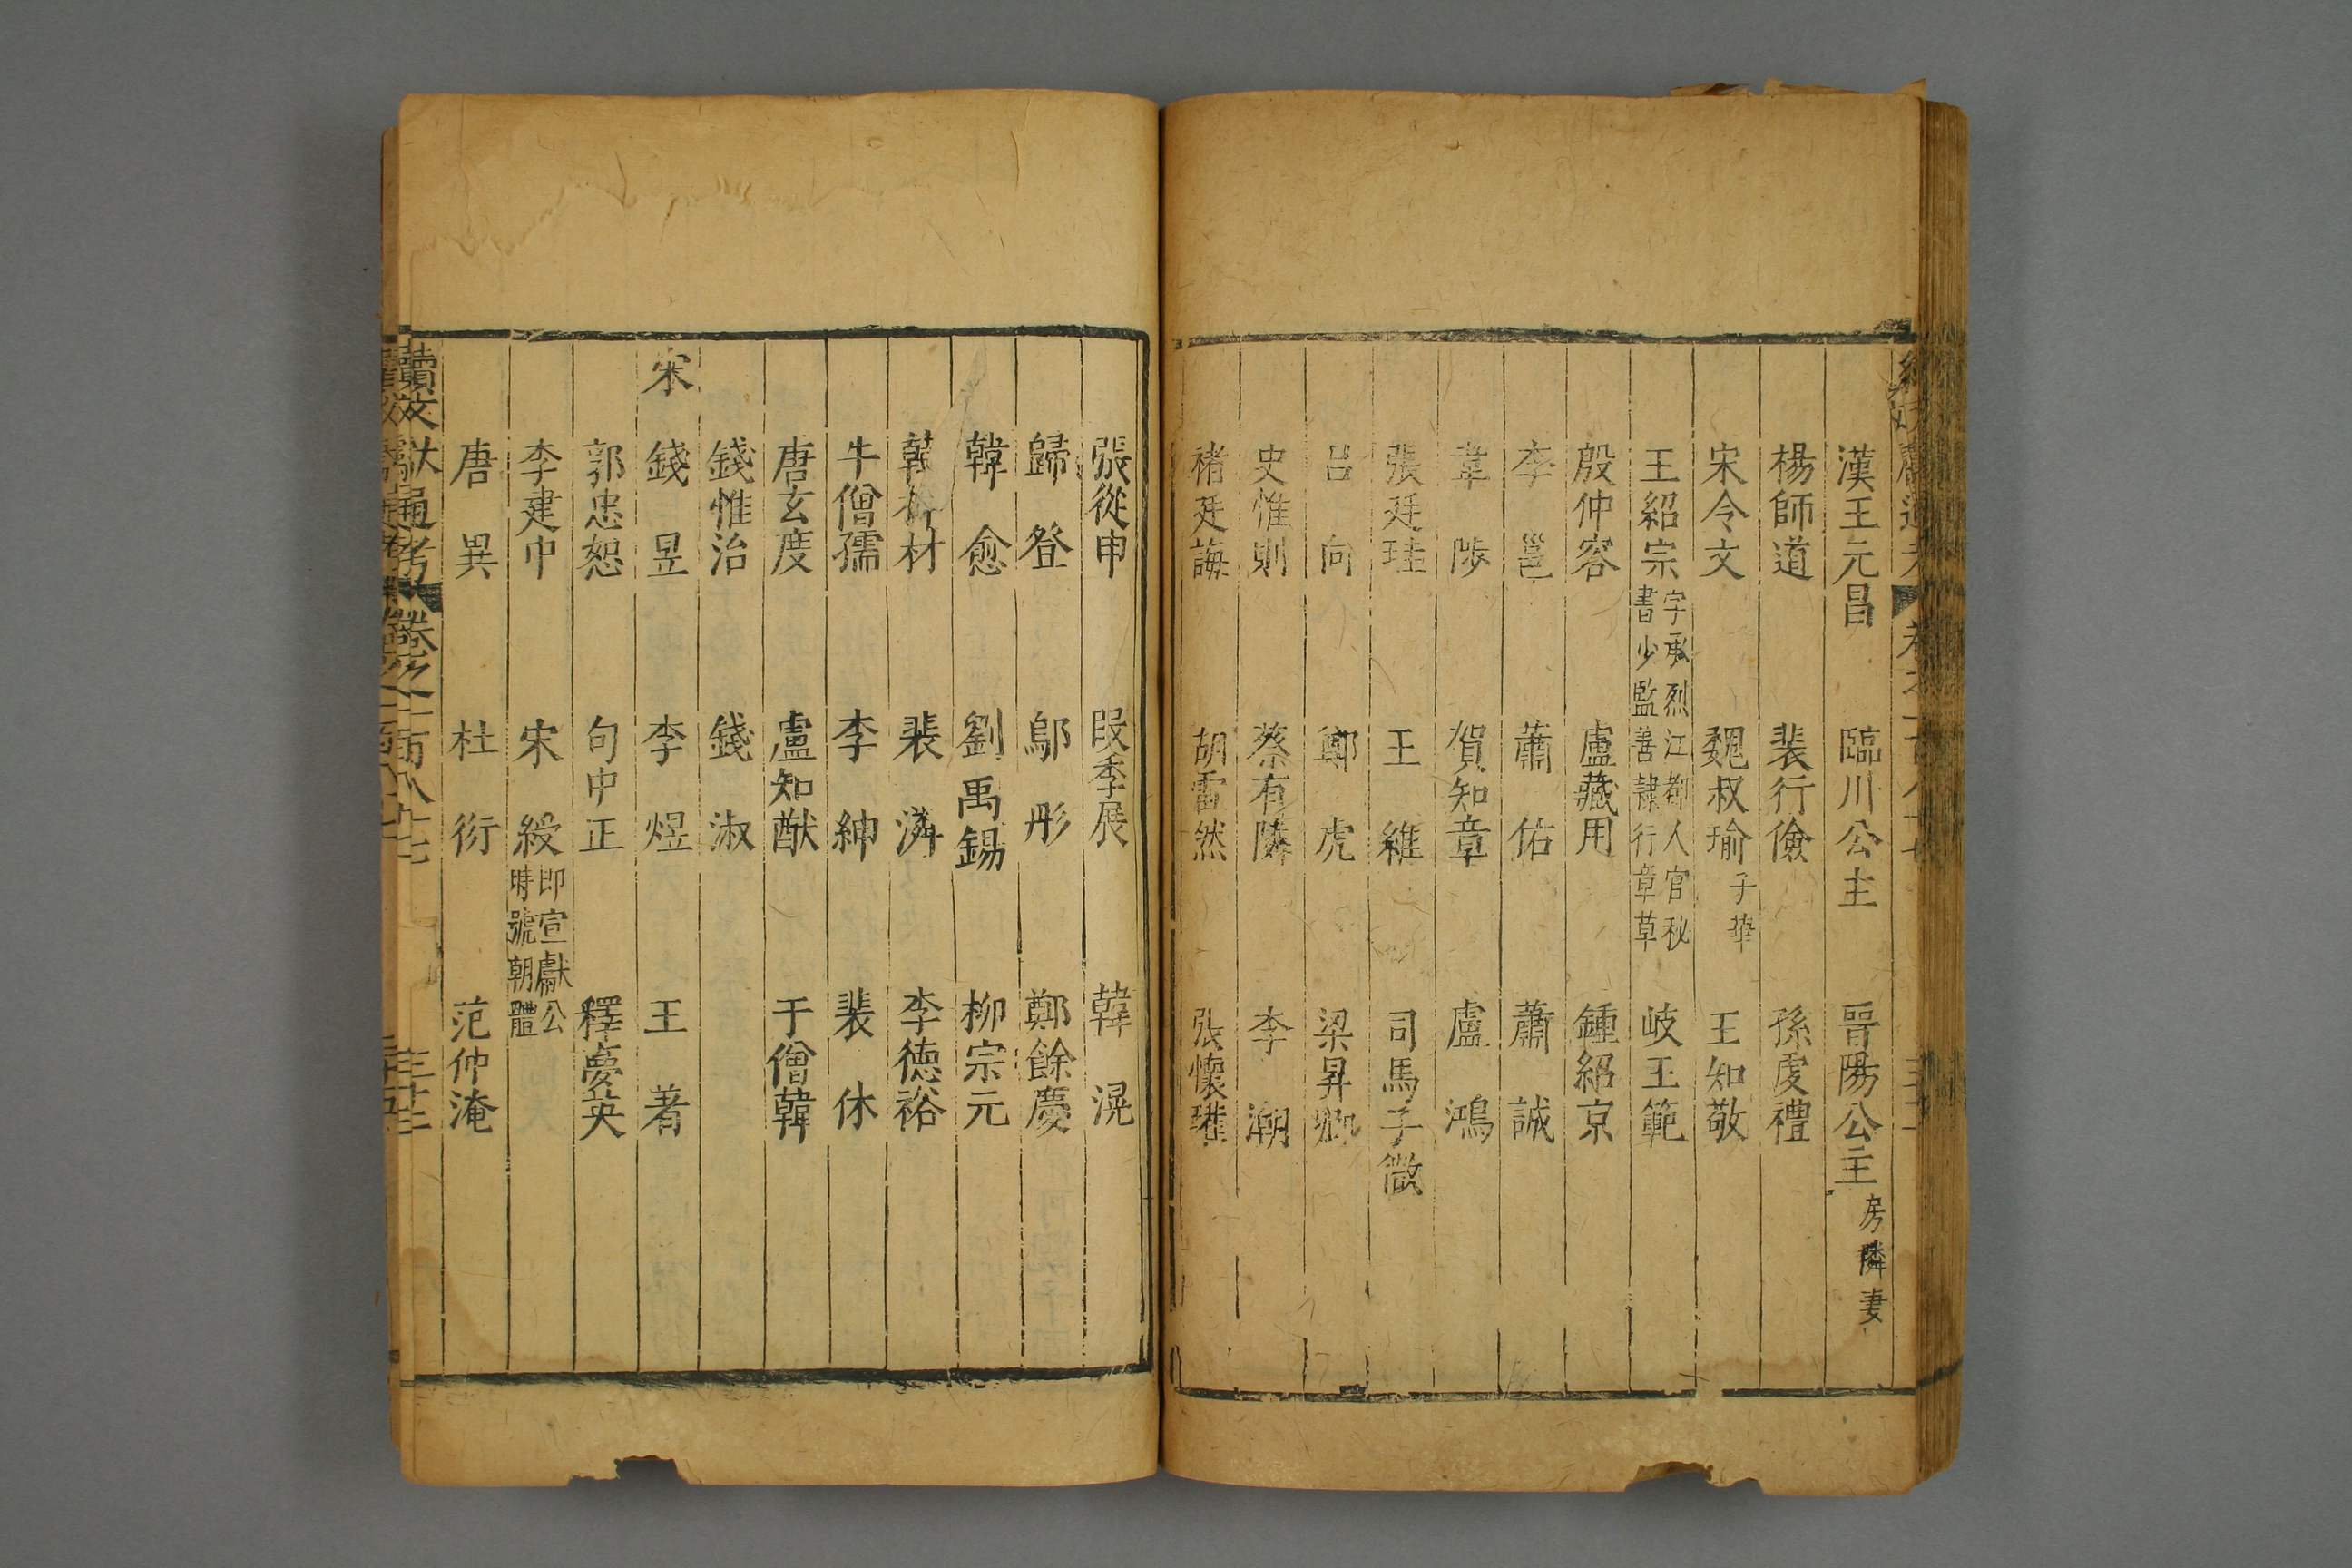 漢王元昌 臨川公主 晉陽公主 房隣妻
楊師道 裴行儉 孫虔禮
宋令文 魏叔瑜 子華 王知敬
王紹宗 字承烈江都人官秘書少監善隸行章草 岐王範
殷仲容 盧藏用 鍾紹京
李邕 蕭佑 蕭誠
韋陟 賀知章 盧鴻
張廷珪 王維 司馬子微
呂向 鄭虎 梁昇卿
史惟則 蔡有隣 李潮
褚廷誨 胡霈然 張懷瓘
張從申 段季展 韓滉
歸登 鄔彤 鄭餘慶
韓愈 劉禹錫 柳宗元
韓梓材 裴潾 李德裕
牛僧孺 李紳 裴休
唐玄度 盧知猷 于僧韓
錢惟治 錢淑
宋 錢昱 李煜 王著
郭忠恕 句中正 釋夢英
李建中 宋綬 即宣獻公時號朝體
唐異 杜衍 范仲淹
續文獻通考 卷之一百八十七 三十二